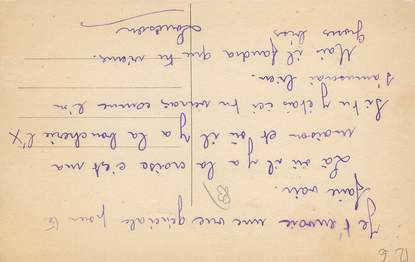 Je t'envoie une vue générale pour te
faire voir.
Là où il y a la croise c'est ma
maison et où il y a la boucherie l'X
Si tu y étais ici tu verrais comme l'on
s'amuserai bien.
Mai il faudra que tu vienne.
Gross bies
Louison